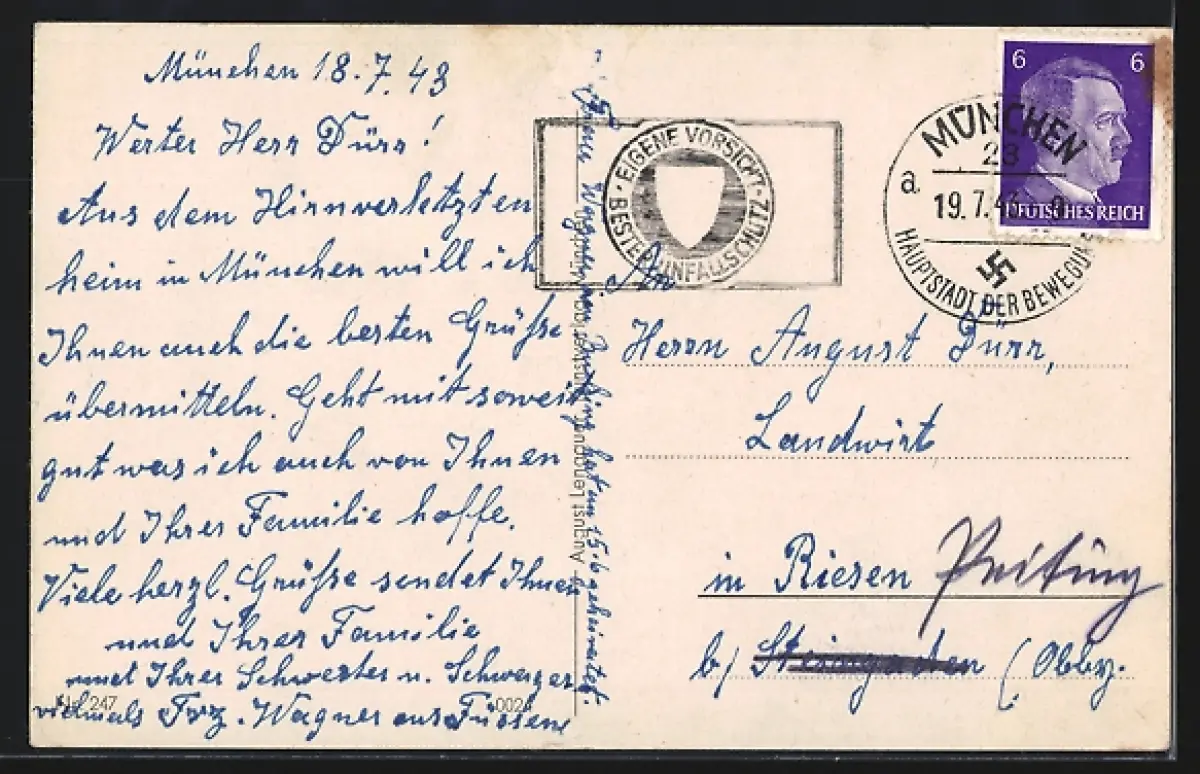 München 18.7.43
Werter Herr Dürr!
Aus dem Hirnverletzten
heim in München will ich
Ihnen auch die besten Grüße
übermitteln. Geht mit soweit
gut was ich auch von Ihnen
und Ihrer Familie hoffe.
Viele herzl. Grüße sendet Ihnen
und Ihrer Familie
und Ihrer Schwester u. Schwager
vielmals Frz. Wagner aus Füssen
247
Wagner hat am 15.6 geheiratet.
August Lengauer
EIGENE VORSICHT
BESTER UNFALLSCHUTZ
MÜNCHEN
28
a.
19.7.43
HAUPTSTADT DER BEWEGUNG
6 6
DEUTSCHES REICH
An
Herrn August Dürr,
Landwirt
in Riesen Peiting
b/ Steingaden (Obby.